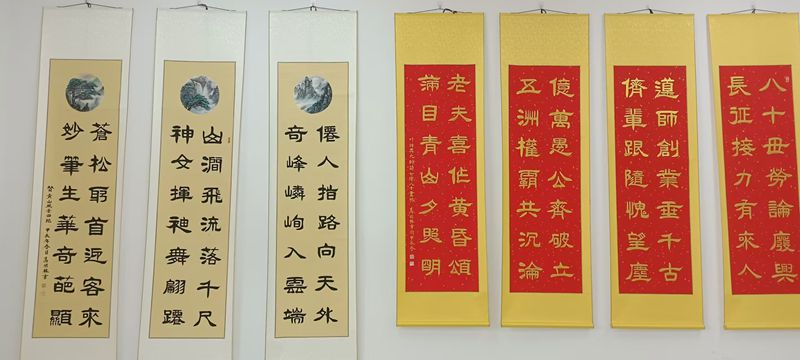 僊人指路向天外
奇峰嶙峋入雲端
山澗飛流落千尺
神女揮袖舞翩躚
蒼松躬首迎客來
妙筆生華奇葩顯
八十毋勞論廢興
長征接力有來人
導師創業垂千古
儕輩跟隨愧望塵
億萬愚公齊破立
五洲權霸共沉淪
老夫喜作黃昏頌
滿目青山夕照明